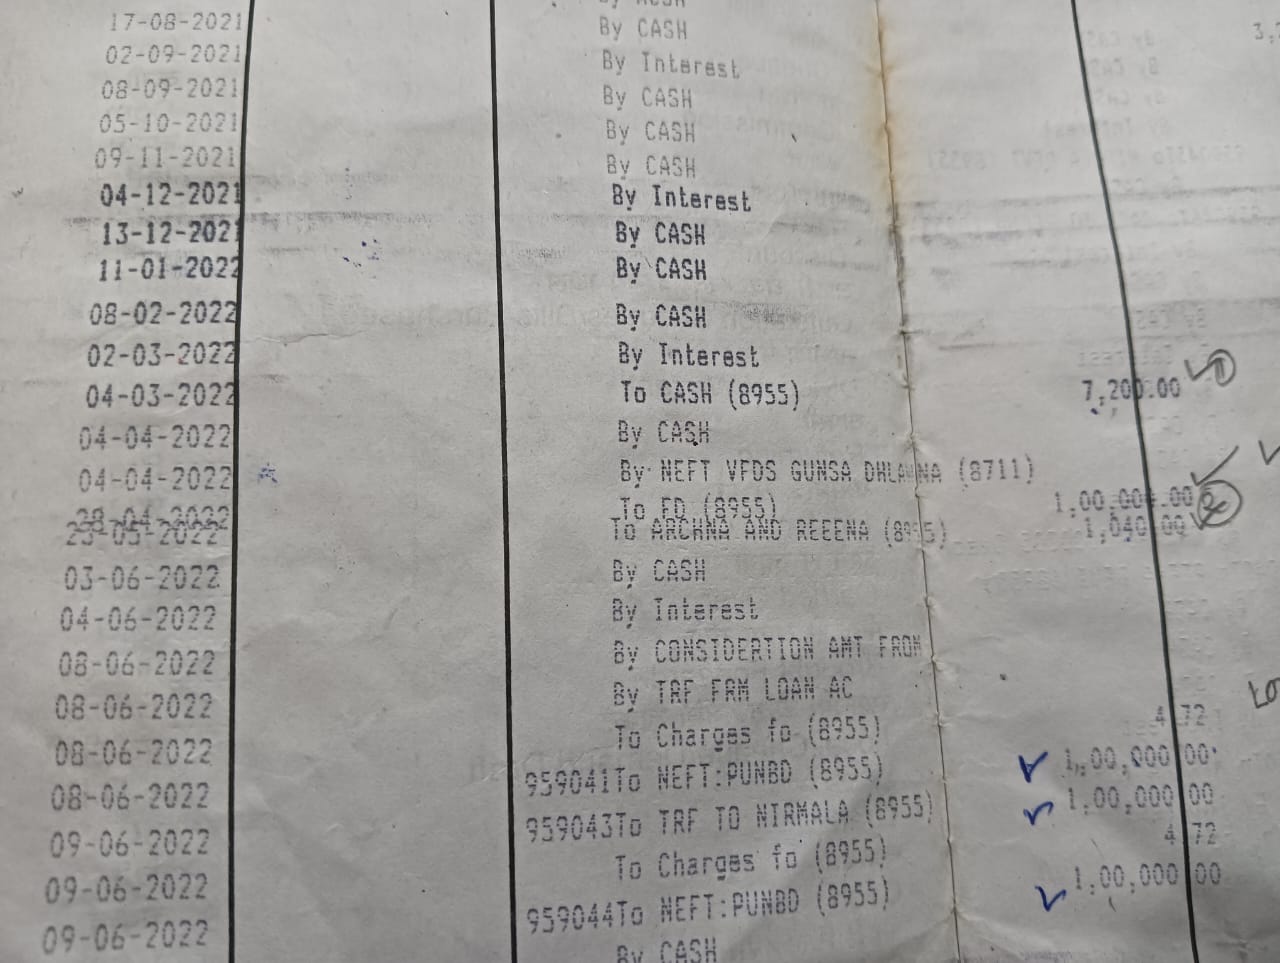 17-08-2021 By CASH
02-09-2021 By Interest
08-09-2021 By CASH
05-10-2021 By CASH
09-11-2021 By CASH
04-12-2021 By Interest
13-12-2021 By CASH
11-01-2022 By CASH
08-02-2022 By CASH
02-03-2022 By Interest
04-03-2022 To CASH (8955) 7,200.00 1
04-04-2022 By CASH
04-04-2022 By NEFT VFDS GUNSA (8711)
28-04-2022 To FD (8955) 1,00,000.00 2
23-05-2022 To ARCHNA AND REEENA (8955) 1,040.00
03-06-2022 By CASH
04-06-2022 By Interest
08-06-2022 By CONSIDERTION AMT FROM
08-06-2022 By TRF FRM LOAN AC
08-06-2022 To Charges fo (8955) 4.72
08-06-2022 959041To NEFT:PUNBD (8955) 1,00,000.00
09-06-2022 959043To TRF TO NIRMALA (8955) 1,00,000.00
09-06-2022 To Charges fo (8955) 4.72
09-06-2022 959044To NEFT:PUNBD (8955) 1,00,000.00
By CASH